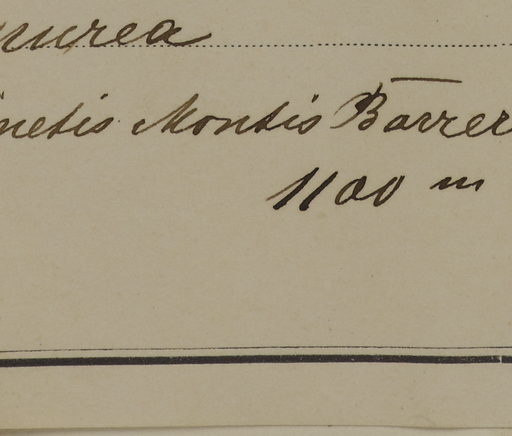 purea
inetis Montis Barrer
1100 m